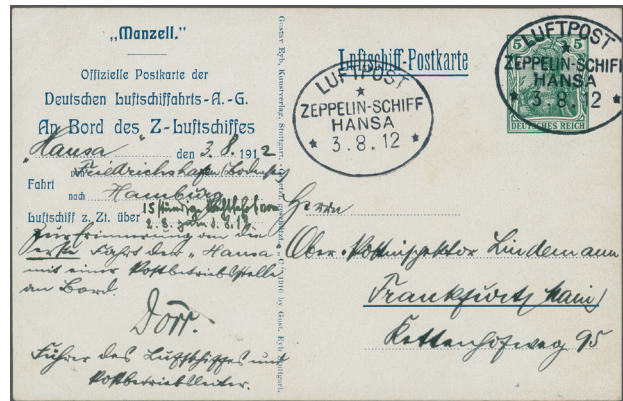 „Manzell."
Offizielle Postkarte der
Deutschen Luftschiffahrts-A.-G.
An Bord des Z-Luftschiffes
„Hansa" den 3.8. 1912
von Friedrichshafen (Bodensee)
Fahrt nach Hamburg
Luftschiff z. Zt. über 15 stündige
2.8. zum 3.8.12
Zur Erinnerung an die
erste Fahrt der „Hansa
mit einer Postbetriebsstelle
an Bord.
Dörr.
Führer des Luftschiffes und
Postbetriebsleiter.
Gustav Eyb, Kunstverlag, Stuttgart. 1910 by Gust. Eyb Stuttgart.
Luftschiff-Postkarte
LUFTPOST
ZEPPELIN-SCHIFF
HANSA
* 3.8.12 *
5 5
DEUTSCHES REICH
LUFTPOST
ZEPPELIN-SCHIFF
HANSA
* 3.8.12 *
Herrn
Ober-Postinspektor Lindemann
Frankfurt (Main)
Kettenhofweg 95